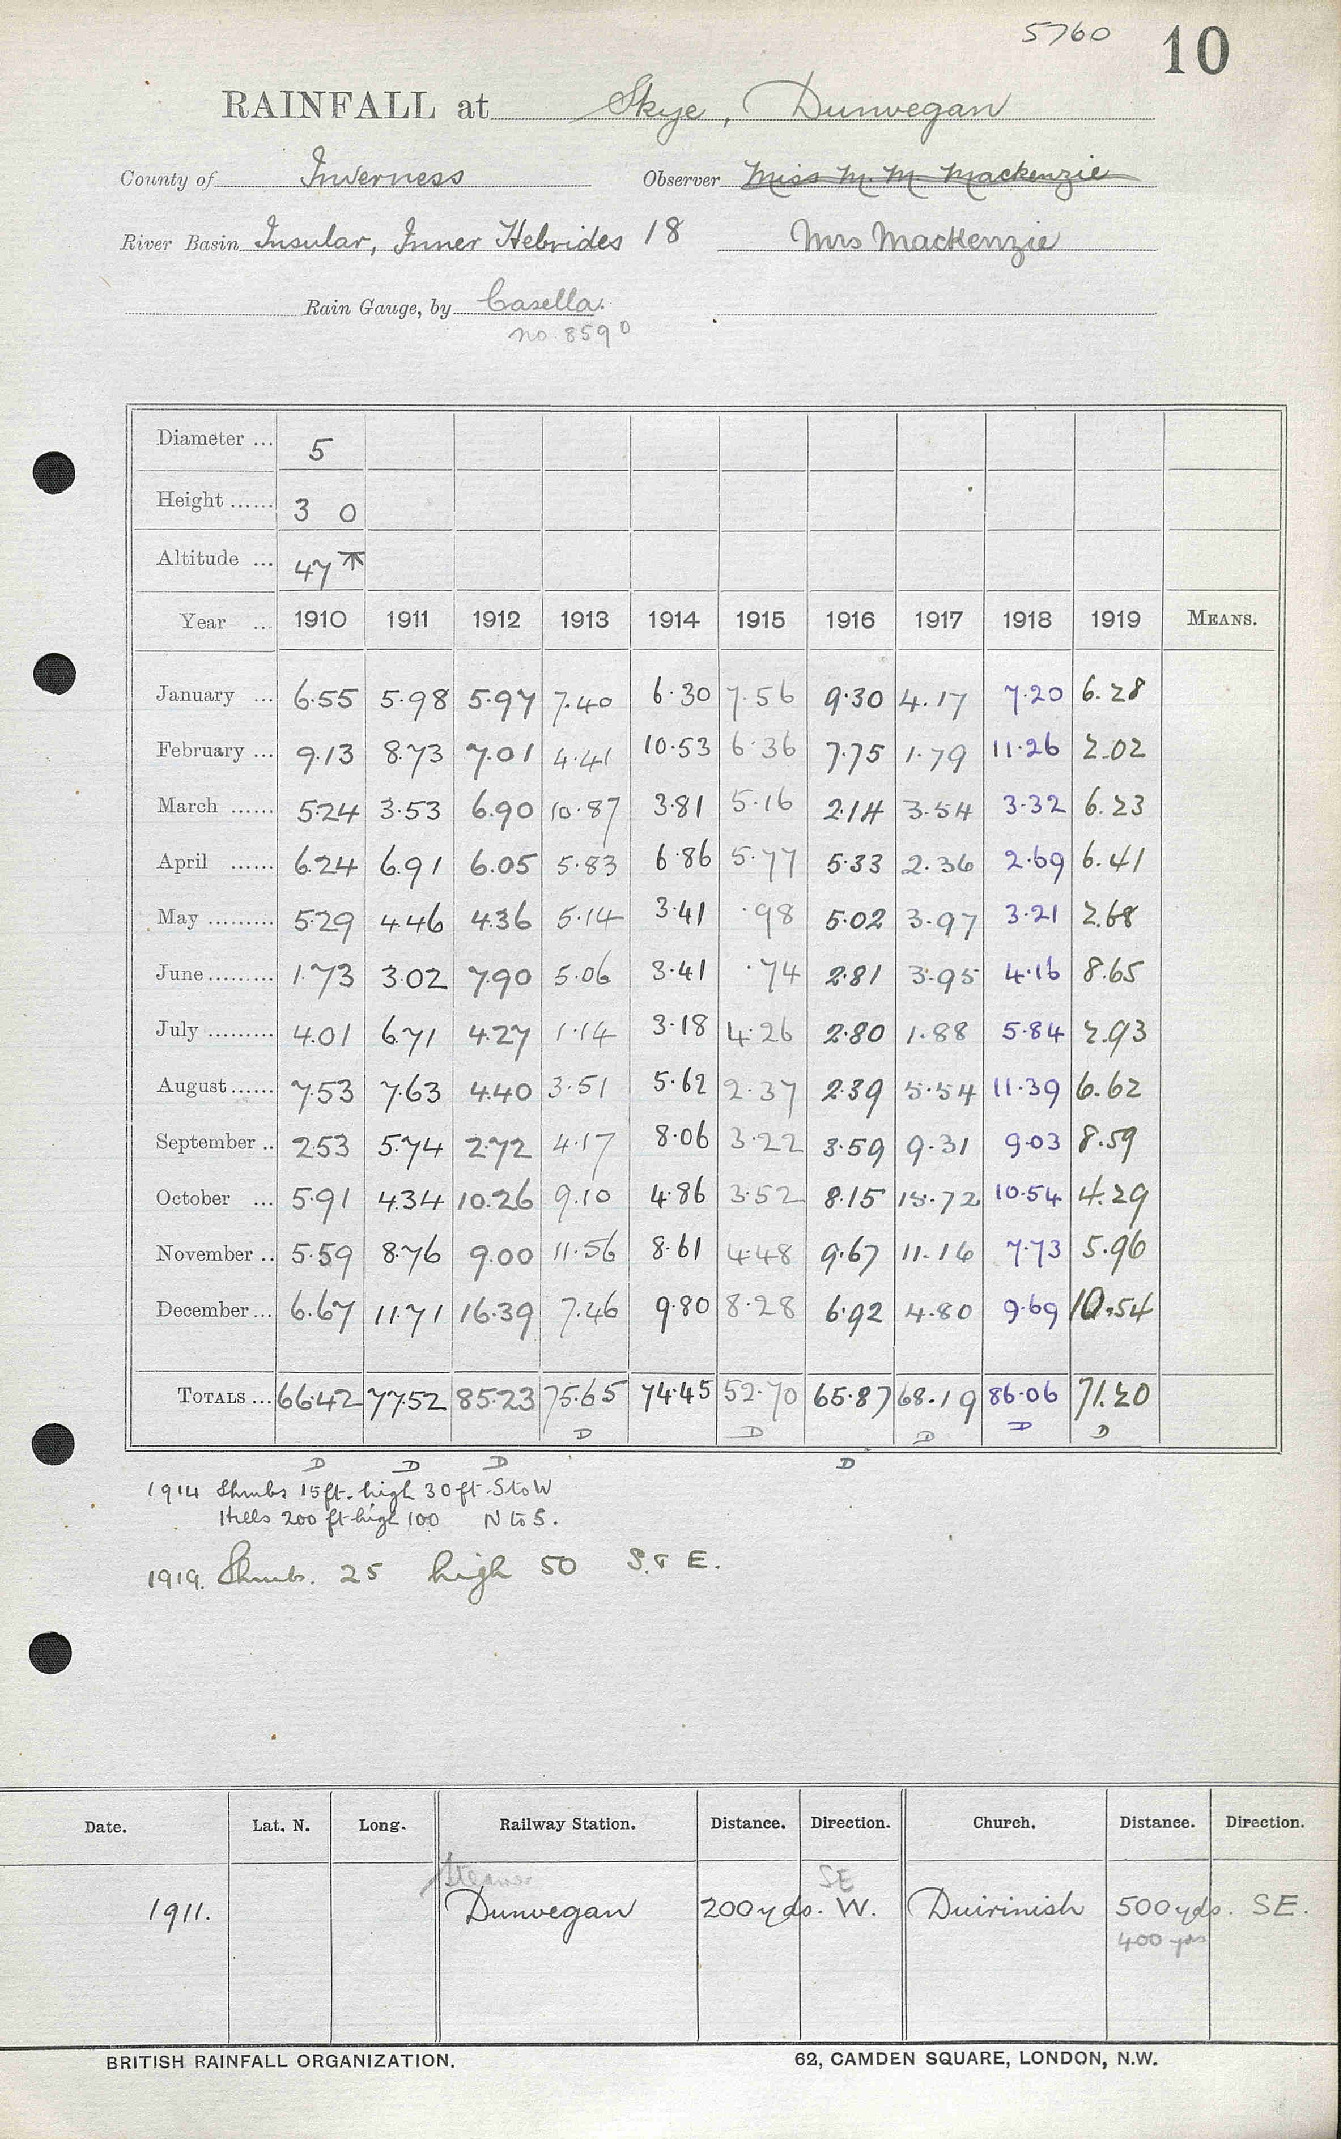 5760 10
RAINFALL at Skye, Dunvegan
County of Inverness Observer Miss M. M. Mackenzie
River Basin Insular, Inner Hebrides 18 Mrs MacKenzie
Rain Gauge, by Casella.
no. 8590
Diameter ... 5
Height ...... 3 0
Altitude ... 47 T
Year ... 1910 1911 1912 1913 1914 1915 1916 1917 1918 1919 MEANS.
January ... 6.55 5.98 5.97 7.40 6.30 7.56 9.30 4.17 7.20 6.28
February ... 9.13 8.73 7.01 4.41 10.53 6.36 7.75 1.79 11.26 2.02
March ...... 5.24 3.53 6.90 10.87 3.81 5.16 2.14 3.54 3.32 6.23
April ...... 6.24 6.91 6.05 5.83 6.86 5.77 5.33 2.36 2.69 6.41
May ......... 5.29 4.46 4.36 5.14 3.41 .98 5.02 3.97 3.21 2.68
June ......... 1.73 3.02 7.90 5.06 3.41 .74 2.81 3.95 4.16 8.65
July ......... 4.01 6.71 4.27 1.14 3.18 4.26 2.80 1.88 5.84 2.93
August ...... 7.53 7.63 4.40 3.51 5.62 2.37 2.39 5.54 11.39 6.62
September .. 2.53 5.74 2.72 4.17 8.06 3.22 3.59 9.31 9.03 8.59
October ... 5.91 4.34 10.26 9.10 4.86 3.52 8.15 15.72 10.54 4.29
November .. 5.59 8.76 9.00 11.56 8.61 4.48 9.67 11.16 7.73 5.96
December ... 6.67 11.71 16.39 7.46 9.80 8.28 6.92 4.80 9.69 10.54
TOTALS ... 66.42 77.52 85.23 75.65 74.45 52.70 65.87 68.19 86.06 71.20
D D D D D
D D D D
1914 Shrubs 15 ft. high 30 ft. S to W
Hills 200 ft high 100 N to S.
1919. Shrubs. 25 high 50 S. & E.
Date. Lat. N. Long. Railway Station. Distance. Direction. Church. Distance. Direction.
Steamer SE
1911. Dunvegan 200 yds. W. Duirinish 500 yds. SE.
400 yds
BRITISH RAINFALL ORGANIZATION. 62, CAMDEN SQUARE, LONDON, N.W.